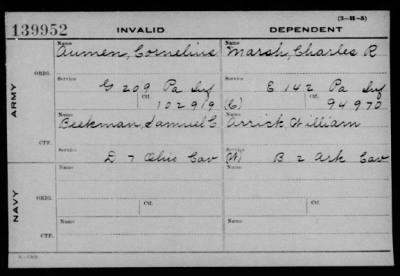 (3—H—5)
139952 INVALID DEPENDENT
Name Aumen, Cornelius Name Marsh, Charles R
ORIG.
Service G 209 Pa Inf Service E 142 Pa Inf
Ctf. 102919 (C) Ctf. 94970
ARMY
Name Beekman, Samuel C Name Arrick, William
CTF.
Service D 7 Ohio Cav Service B 2 Ark Cav
Name Name
ORIG.
Service Ctf. Service Ctf.
NAVY
Name Name
CTF.
Service Service